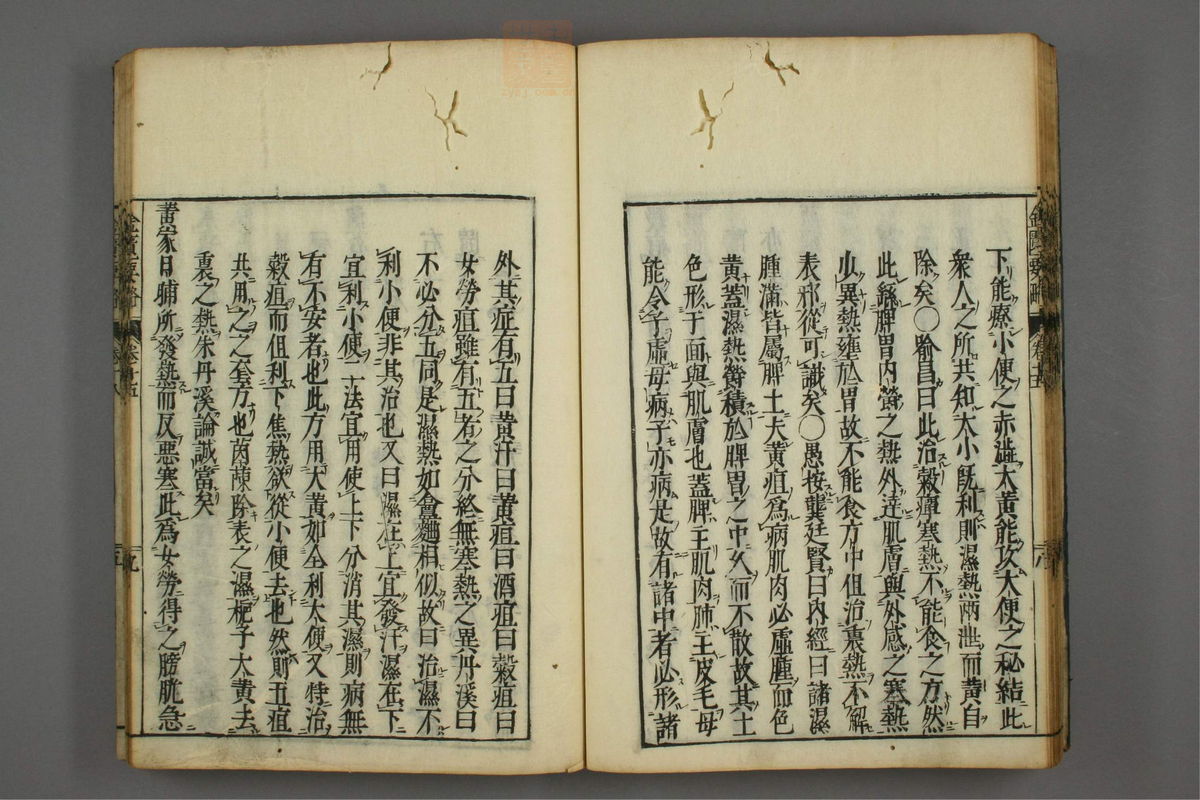 下能療小便之赤澁大黄能攻大便之秘結此
衆人之所共知大小既利則濕熱兩泄而黄自
除矣〇喻昌曰此治穀癉寒熱不能食之方然
此繇脾胃内蒸之熱外達肌膚與外感之寒熱
少異熱壅於胃故不能食方中但治裏熱不解
表邪從可識矣〇愚按龔廷賢曰内經曰諸濕
腫滿皆屬脾土夫黄疸爲病肌肉必虚腫而色
黄蓋濕熱欝積於脾胃之中久而不散故其土
色形于面與肌膚也蓋脾主肌肉肺主皮毛母
能令子虚母病子亦病是故有諸中者必形諸
外其症有五曰黄汗曰黄疸曰酒疸曰穀疸曰
女勞疸雖有五者之分終無寒熱之異丹溪曰
不必分五同是濕熱如盦麯相似故曰治濕不
利小便非其治也又曰濕在上宜發汗濕在下
宜利小便二法宜用使上下分消其濕則病無
有不安者也此方用大黄如全利大便又特治
穀疸而但利下焦熱欲從小便去也然則五疸
共用之之全方也茵蔯除表之濕梔子大黄去
裏之熱朱丹溪論誠當矣
黄家日晡所發熱而反惡寒此爲女勞得之膀胱急
金匱要略
卷十五